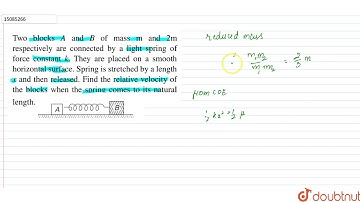 15085266
Two blocks A and B of mass m and 2m
respectively are connected by a light spring of
force constant k. They are placed on a smooth
horizontal surface. Spring is stretched by a length
x and then released. Find the relative velocity of
the blocks when the spring comes to its natural
length.
A B
reduced mass
m₁m₂ / m₁ m₂ = 2/3 m
μ
COE
½ kx² = ½ μ
doubtnut